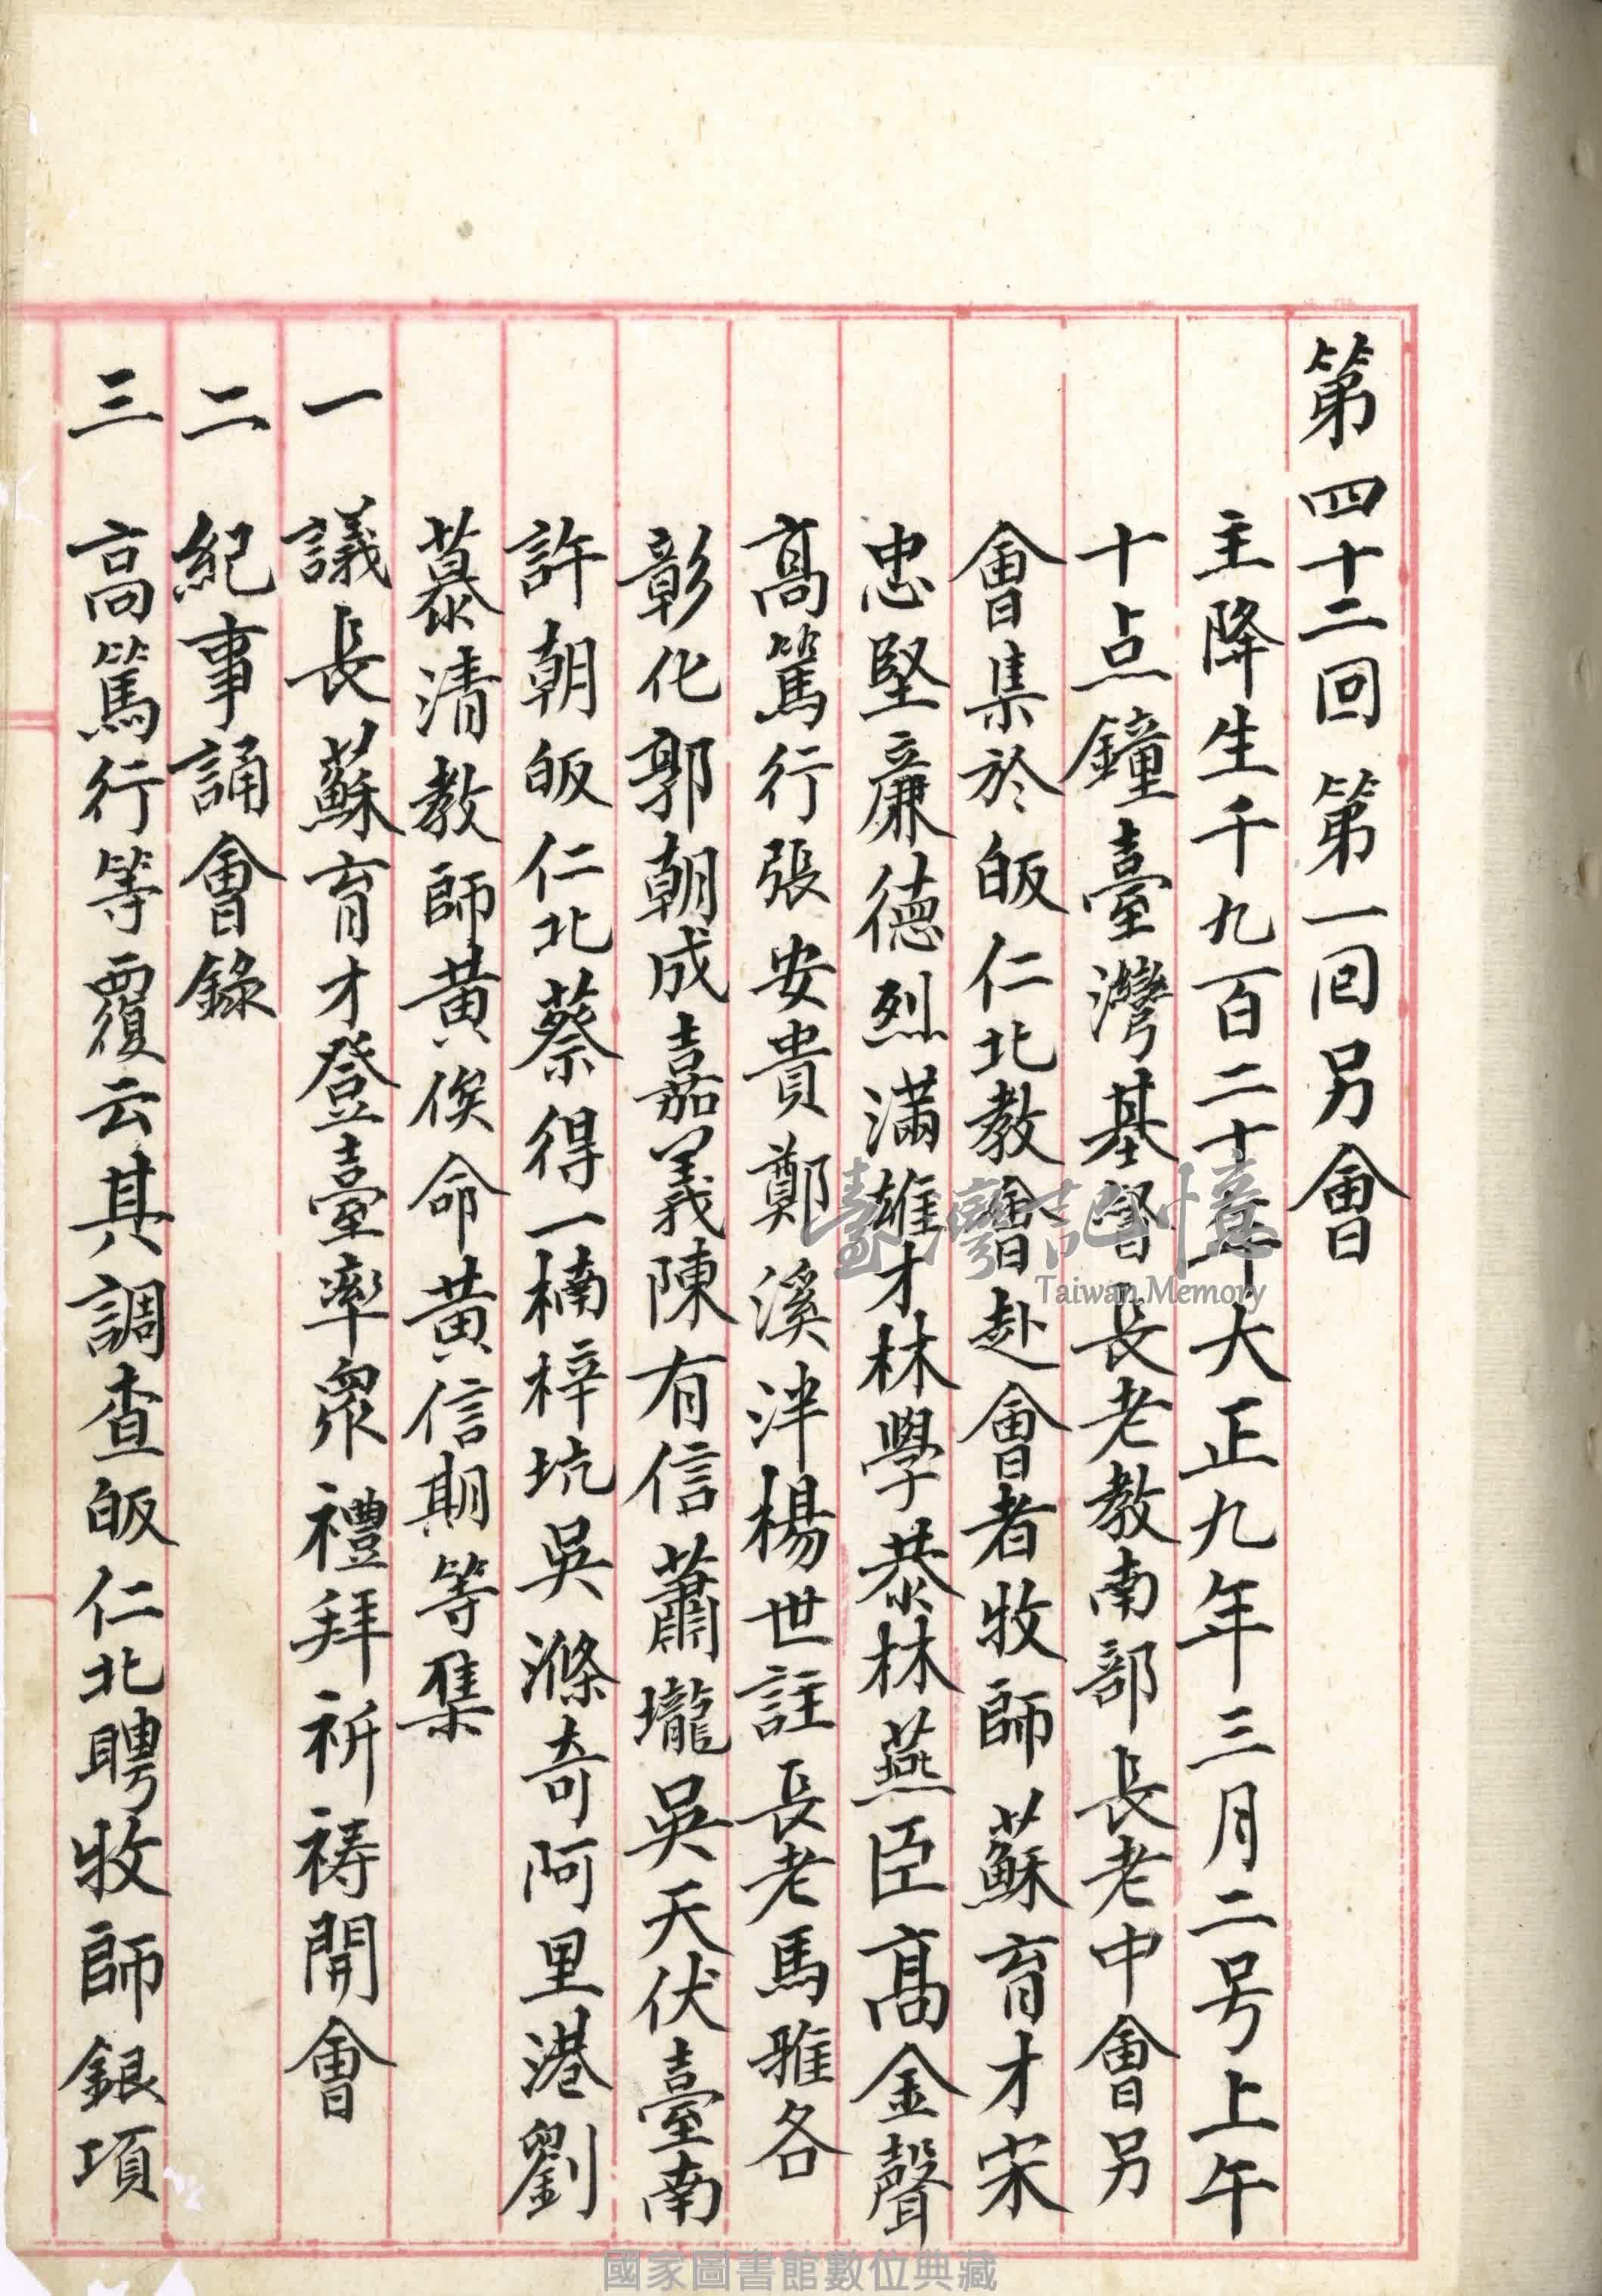 第四十二回 第一回另會
主降生千九百二十年大正九年三月二号上午
十点鐘臺灣基督長老教南部長老中會另
會集於皈仁北教會赴會者牧師蘇育才宋
忠堅廉德烈滿雄才林學恭林燕臣髙金聲
髙篤行張安貴鄭溪泮楊世註長老馬雅各
彰化郭朝成嘉義陳有信蕭壠吳天伏臺南
許朝皈仁北蔡得一楠梓坑吳滌奇阿里港劉
慕清教師黃俟命黃信期等集
一 議長蘇育才登臺率眾禮拜祈祷開會
二 紀事誦會錄
三 高篤行等覆云其調查皈仁北聘牧師銀項
臺灣記憶
Taiwan Memory
國家圖書館數位典藏